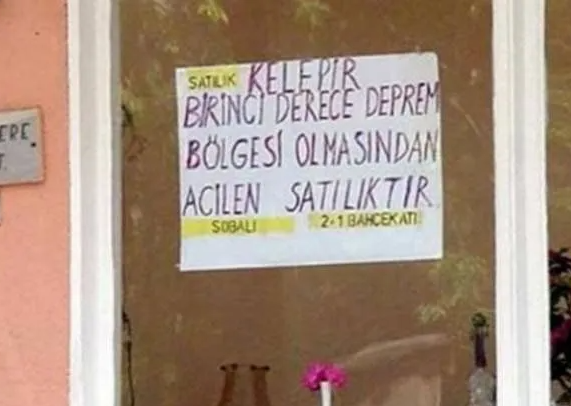 SATILIK KELEPİR
BİRİNCİ DERECE DEPREM
BÖLGESİ OLMASINDAN
ACİLEN SATILIKTIR
SOBALI 2+1 BAHÇEKATI
ERE